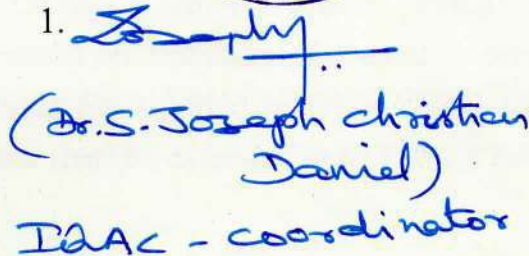 1. Joseph
(Dr. S. Joseph christian
Daniel)
IQAC - coordinator